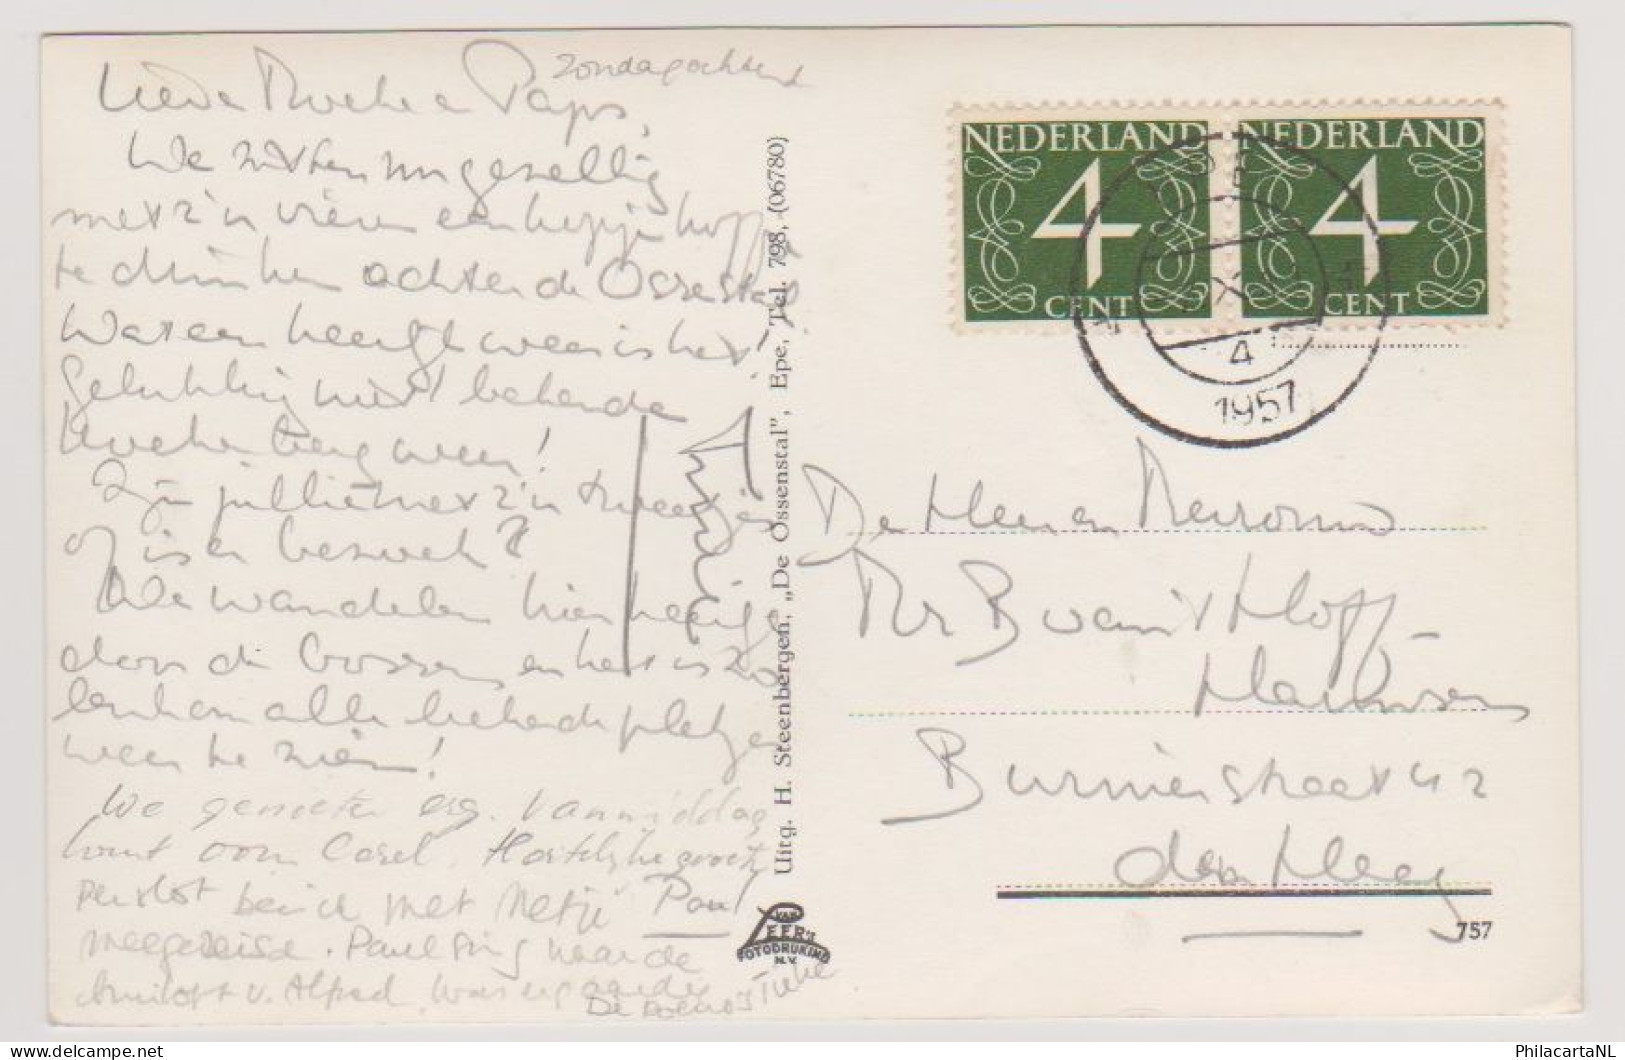 Zondagochtend
Lieve Moeke en Paps,
We zitten nu gezellig
met z'n vieren een kopje koffie
te drinken achter de Ossestal
Wat een heerlijk weer is het!
Gelukkig niet bekende
weer!
Zijn jullie met z'n tweetjes
of is er bezoek?
We wandelen hier heerlijk
door de bossen en het is zo
leuk om alle bekende plekjes
weer te zien!
We genieten erg. Vanmiddag
komt oom Carel. Hartelijke groeten
Per slot ben ik met Netje Paul
meegereisd. Paul ging naar de
v. Alfred, was erg aardig
Tineke
Uitg. H. Steenbergen, „De Ossenstal", Epe, Tel. 798, (06780)
VAN
LEER'S
FOTODRUKIND
N.V.
NEDERLAND
4
CENT
NEDERLAND
4
CENT
4
1957
De Heer en Mevrouw
Mr B van 't Hoff-
Burnierstraat 42
den Haag
757
PhilacartaNL